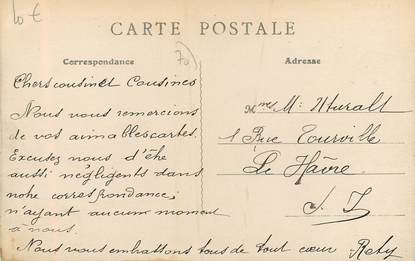 10 €
CARTE POSTALE
70
Correspondance
Adresse
Chers cousin et Cousines
Nous vous remercions
de vos aimables cartes.
Excusez nous d'être
aussi négligents dans
notre correspondance,
n'ayant aucum moment
à nous.
Nous vous embrassons tous de tout cœur
Mmes M:
1 Rue Tourville
Le Hâvre
S. I